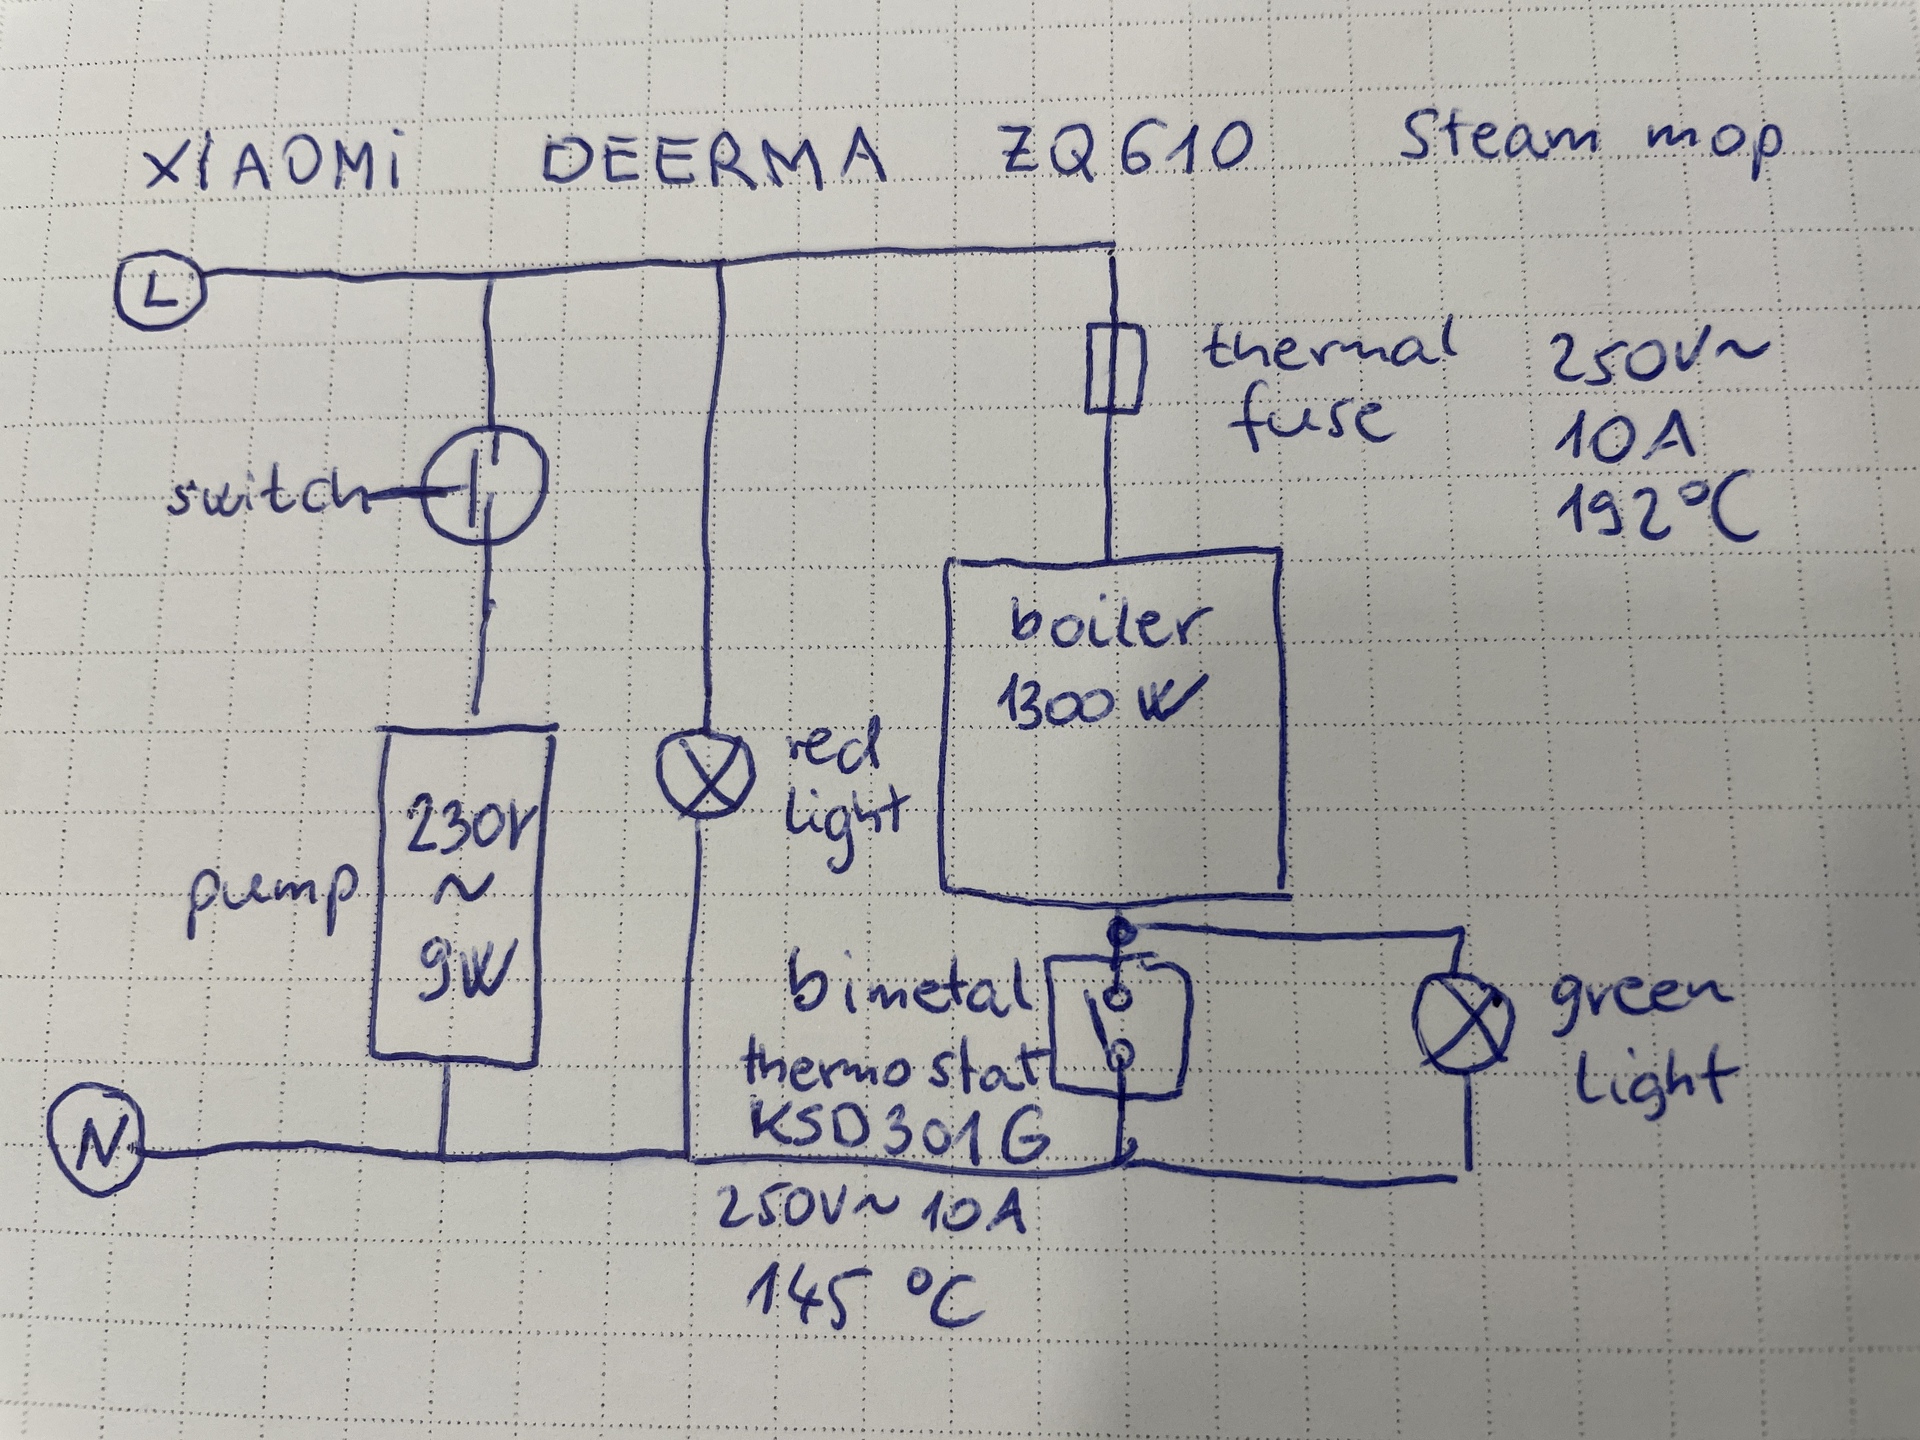 XIAOMi DEERMA ZQ610 Steam mop
L
thermal
fuse
250V~
10A
192°C
switch
boiler
1300 W
red
light
pump
230V
~
9W
bimetal
thermostat
KSD301G
250V~ 10A
145 °C
green
light
N